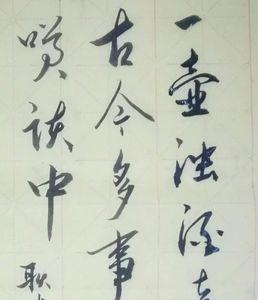 一壶浊酒
古今多事
咲谈中
耿